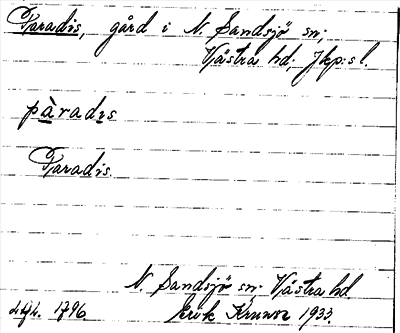 Paradis, gård i N. Sandsjö sn;
Västra hd; Jkp:s l.
pàradıs
Paradis.
N. Sandsjö sn; Västra hd.
1796 Erik 1933.